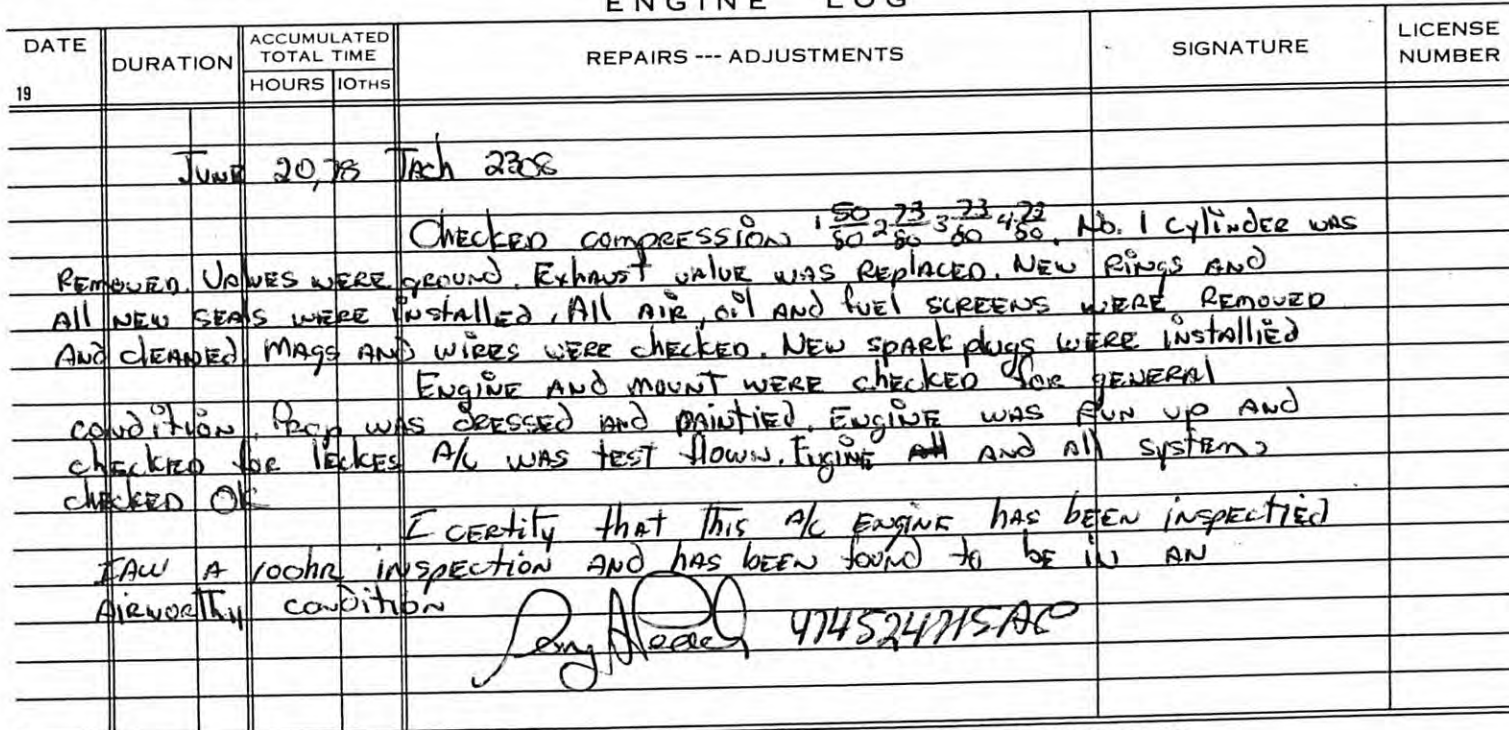 ENGINE LOG
DATE 19 DURATION ACCUMULATED TOTAL TIME HOURS 10THS REPAIRS --- ADJUSTMENTS SIGNATURE LICENSE NUMBER
June 20, 78 Tach 2308
Checked compression 1 50/80 2 73/80 3 73/80 4 72/80. No. 1 cylinder was
removed. Valves were ground. Exhaust valve was replaced. New rings and
all new seals were installed. All air, oil and fuel screens were removed
and cleaned. Mags and wires were checked. New spark plugs were installied
Engine and mount were checked for general
condition. Prop was dressed and paintied. Engine was run up and
checked for leckes A/C was test flown. Engine and all systems
checked OK
I certify that this A/C engine has been inspectied
IAW a 100hr inspection and has been found to be in an
airworthy condition